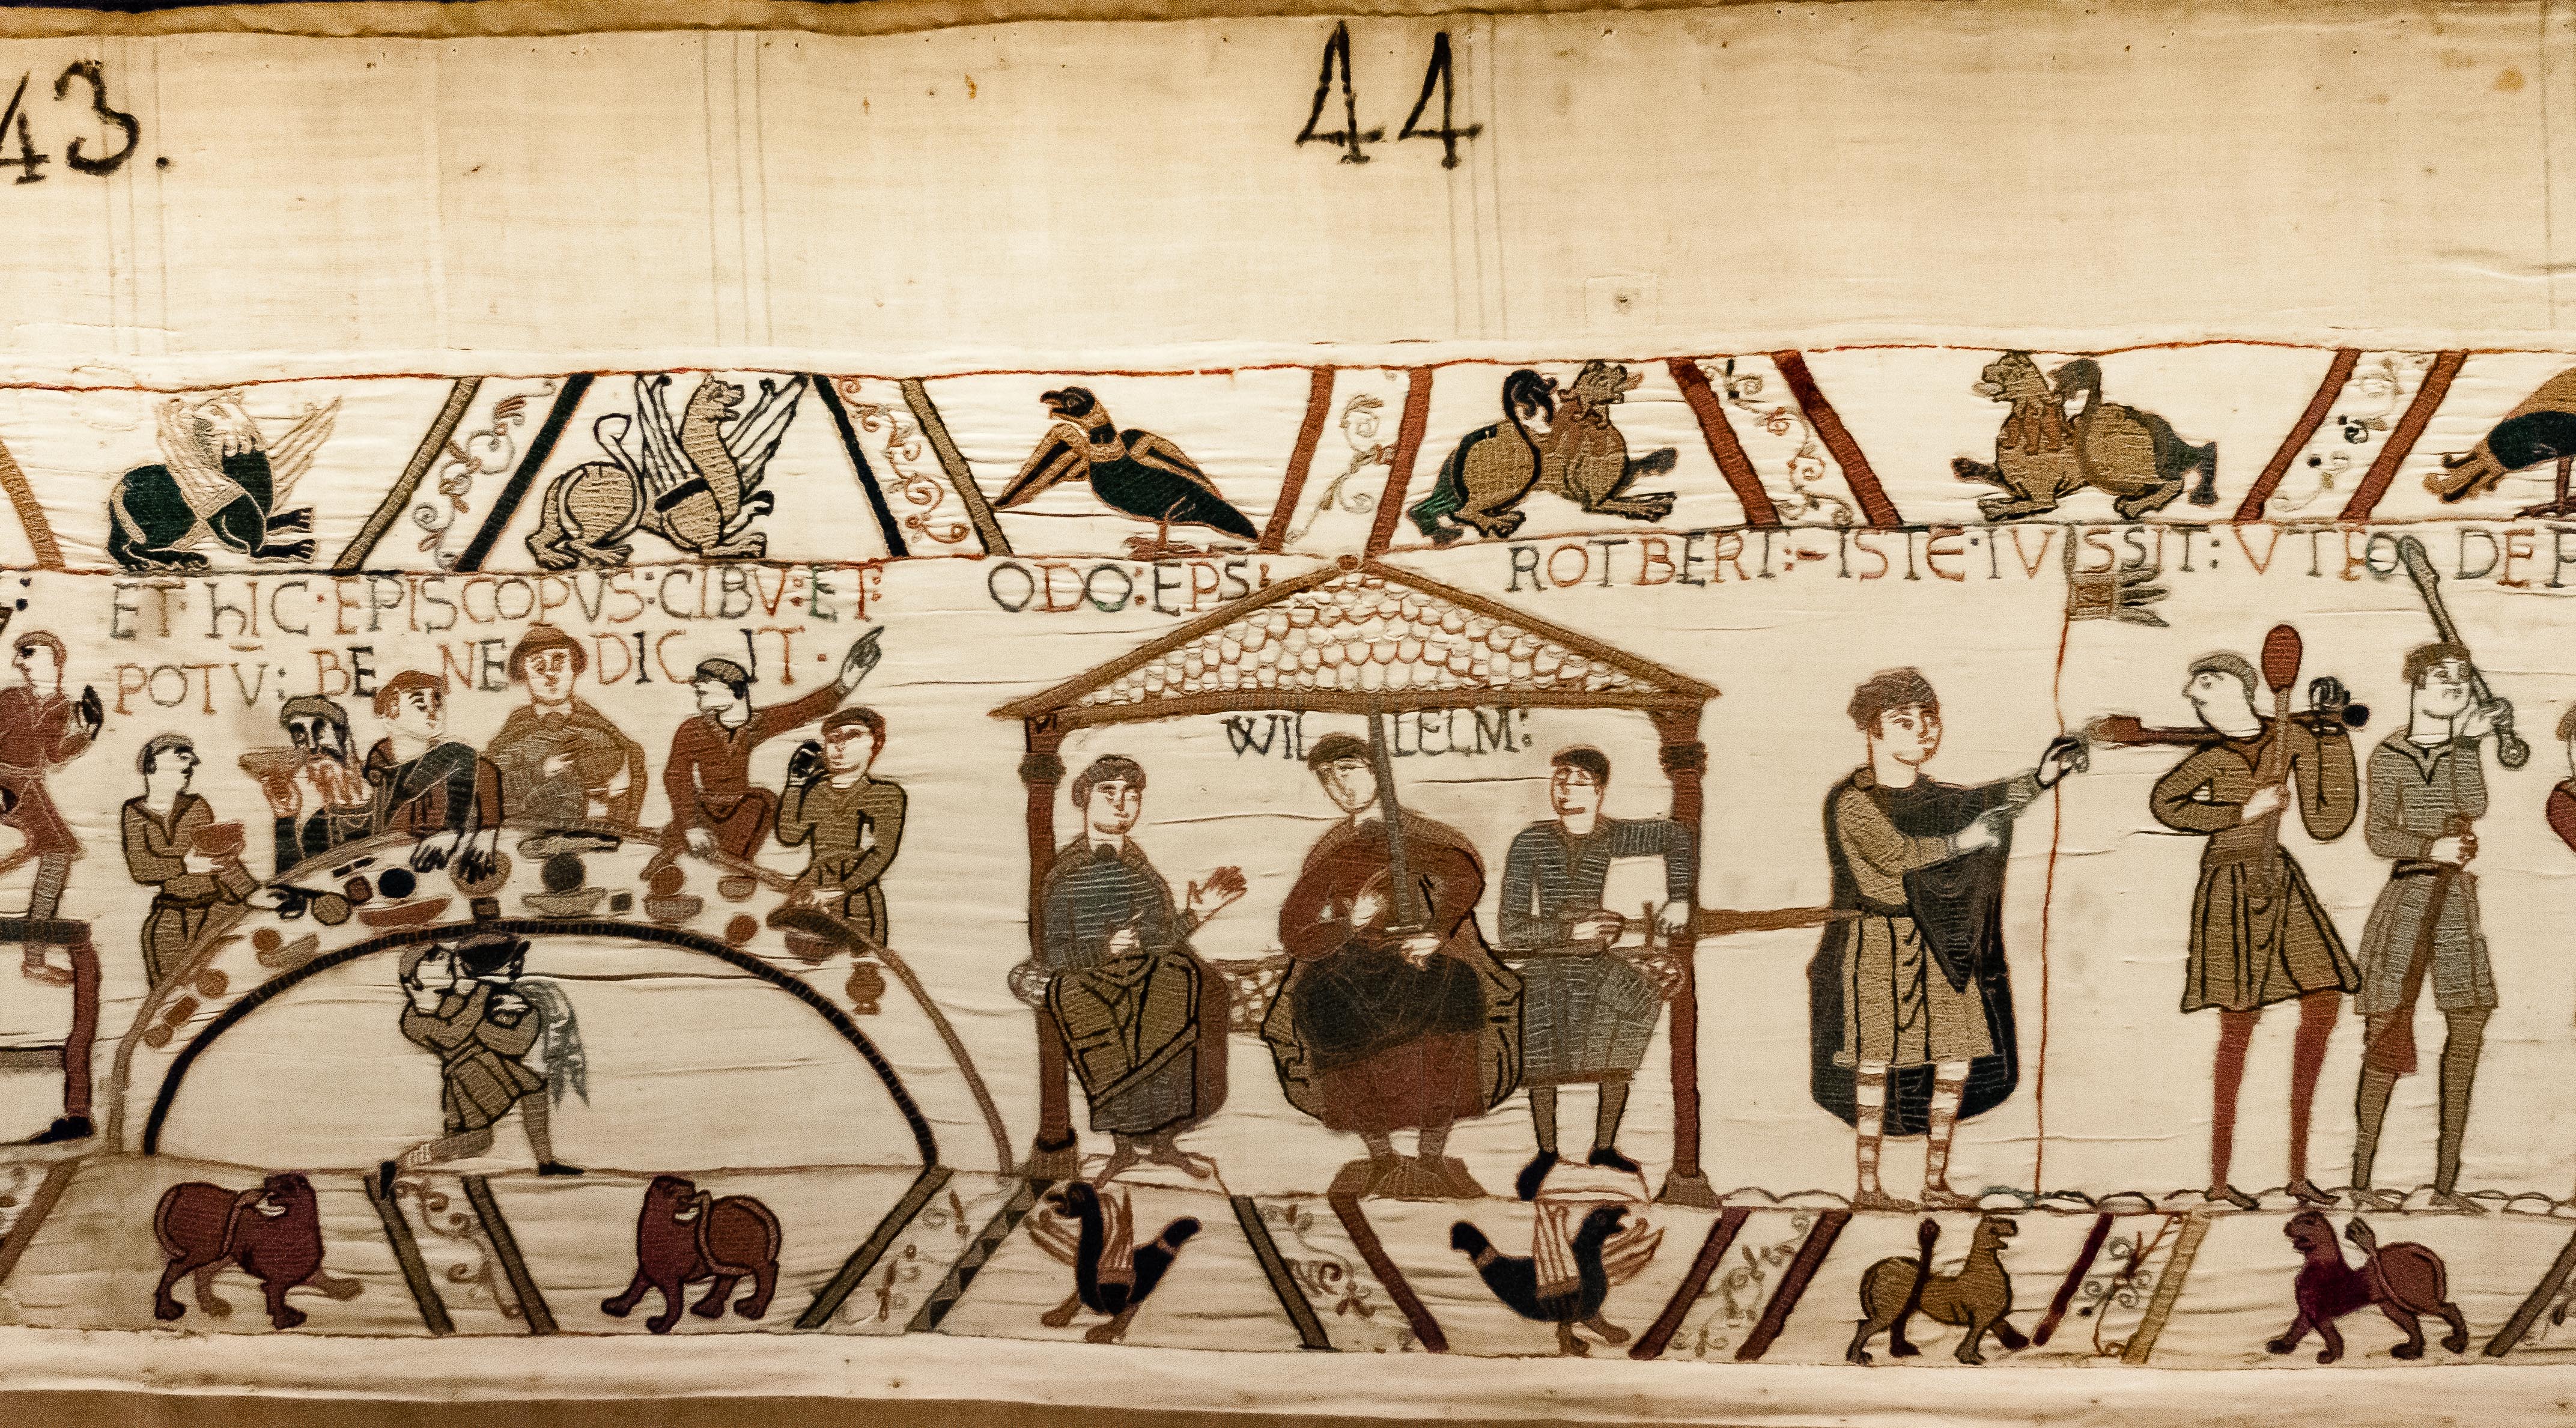 43.
44
ET hIC·EPISCOPVS:CIBV:ET:
POTV̄: BENEDICIT·
ODO:EPS:
WILLELM:
ROTBERT:-ISTE·IVSSIT: VT FO DE